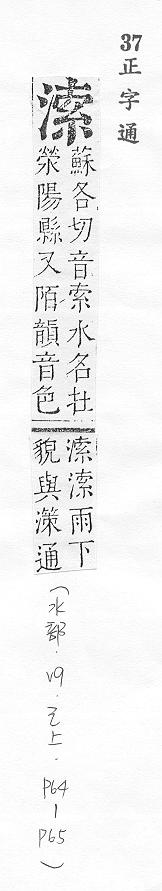 37正字通
溹
蘇各切音索水名在
滎陽縣又陌韻音色
溹溹雨下
貌與㴩通
(水部.v9.巳上.P64-P65)